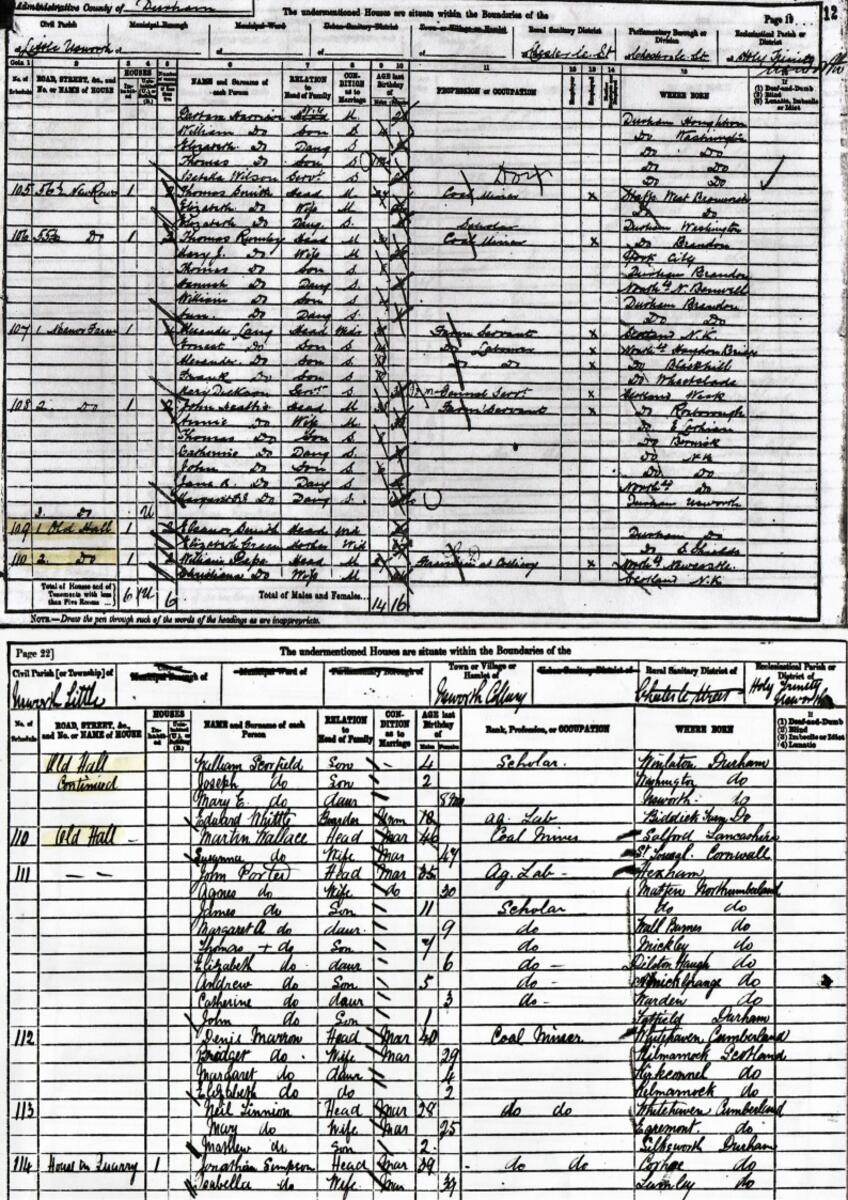 Administrative County of Durham
The undermentioned Houses are situate within the Boundaries of the
Page 19
12
Civil Parish
Municipal Borough
Municipal Ward
Urban Sanitary District
Town or Village or Hamlet
Rural Sanitary District
Parliamentary Borough or Division
Ecclesiastical Parish or District
of Little Usworth of of of of of of Holy Trinity
Cols 1 2 3 4 5 6 7 8 9 10 11 12 13 14 15 16
No. of Schedule ROAD, STREET, &c., and No. or NAME of HOUSE HOUSES NAME and Surname of each Person RELATION to Head of Family CONDITION as to Marriage AGE last Birthday of PROFESSION or OCCUPATION WHERE BORN (1) Deaf-and-Dumb (2) Blind (3) Lunatic, Imbecile or Idiot
Harrison Wife M Durham Houghton
William Do Son S Do Washington
Elizabeth Do Daug S Do Do
Thomas Do Son S Do Do
Wilson Servt S Do Do
105 New Row 1 2 Thomas Smith Head M Coal Miner x Staffs West Bromwich
Elizabeth Do Wife M Do Do
Elizabeth Do Daug S Scholar Durham Washington
106 Do 1 2 Thomas Head M Coal Miner x Do Brandon
Mary J. Do Wife M York City
Thomas Do Son S Durham Brandon
Hannah Do Daug S North'd N. Benwell
William Do Son S Durham Brandon
Do Daug S Do Do
107 1 Manor Farm 1 4 Alexander Lang Head Widr Farm Servant x Scotland N.K.
Ernest Do Son S Do Labourer x North'd Haydon Bridge
Alexander Do Son S Do Do x Do Blackhill
Frank Do Son S Do
Mary Dickson Servt S General Servt x Scotland
108 2 Do 1 2 John Beattie Head M Farm Servant x Do Roxborough
Annie Do Wife M Do E Lothian
Thomas Do Son S Do Berwick
Catherine Do Daug S Do N.K
John Do Son S Do Do
Jane Do Daug S North'd Do
Margaret Do Daug S Durham Usworth
3 Do U
109 1 Old Hall 1 2 Eleanor Smith Head Wid Durham Do
Elizabeth Green Mother Wid Do S. Shields
110 2 Do 1 2 William Head M at Colliery x North'd Newcastle.
Christiana Do Wife M Scotland N.K
Total of Houses and of Tenements with less than Five Rooms 6 1U 6 Total of Males and Females 14 16
NOTE.—Draw the pen through such of the words of the headings as are inappropriate.
Page 22]
The undermentioned Houses are situate within the Boundaries of the
Civil Parish [or Township] of
Municipal Borough of
Municipal Ward of
Parliamentary Borough of
Town or Village or Hamlet of
Urban Sanitary District of
Rural Sanitary District of
Ecclesiastical Parish or District of
Usworth Little Usworth Colliery Chester le Street Holy Trinity Usworth
No. of Schedule ROAD, STREET, &c., and No. or NAME of HOUSE HOUSES Inhabited Uninhabited (U.), or Building (B.) NAME and Surname of each Person RELATION to Head of Family CONDITION as to Marriage AGE last Birthday of Males Females Rank, Profession, or OCCUPATION WHERE BORN If (1) Deaf-and-Dumb (2) Blind (3) Imbecile or Idiot (4) Lunatic
Old Hall William Scorfield Son - 4 Scholar. Winlaton Durham
Continued Joseph do Son 2 Washington do
Mary E. do daur 8 mo Usworth do
Edward Whittle Boarder Unm 18 Ag. Lab Biddick Do
110 Old Hall - Martin Wallace Head Mar 46 Coal Miner Salford Lancashire
Susanna do Wife Mar 47 Cornwall
111 — — John Porter Head Mar 35 Ag. Lab - Hexham
Agnes do Wife do 30 Matfen Northumberland
James do Son 11 Scholar do do
Margaret A do daur. 9 do Wall do
Thomas + do Son 7 do Mickley do
Elizabeth do daur 6 do - Dilston Haugh do
Andrew do Son 5 do - do
Catherine do daur 3 do - Warden do
John do Son 1 Fatfield Durham
112 Denis Marron Head Mar 40 Coal Miner. Whitehaven Cumberland
Bridget do Wife Mar 29 Kilmarnock Scotland
Margaret do daur 4 Kirkconnel do
Elizabeth do do 2 Kilmarnock do
113 Neil Finnion Head Mar 28 do do Whitehaven Cumberland
Mary do Wife Mar 25 Egremont. do
Matthew do Son 2 Silksworth Durham
114 House in Quarry 1 Jonathan Simpson Head Mar 39 do do Coxhoe do
Isabella do Wife Mar 39 Lumley do